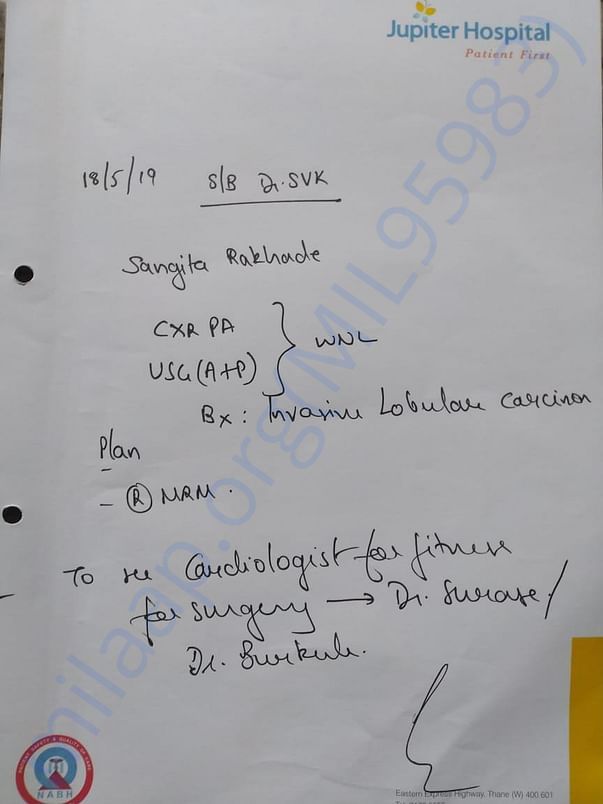 Jupiter Hospital
Patient First
18/5/19 S/B Dr. SVK
Sangita Rakhade
CXR PA
USG (A+P) } WNL
Bx : Invasive Lobular Carcinom
Plan
- Ⓡ MRM.
To see Cardiologist for fitness
for surgery → Dr. Surase /
Dr. Burkule.
milaap.org(MIL959833)
PATIENT SAFETY & QUALITY OF CARE
NABH
Eastern Express Highway, Thane (W) 400 601